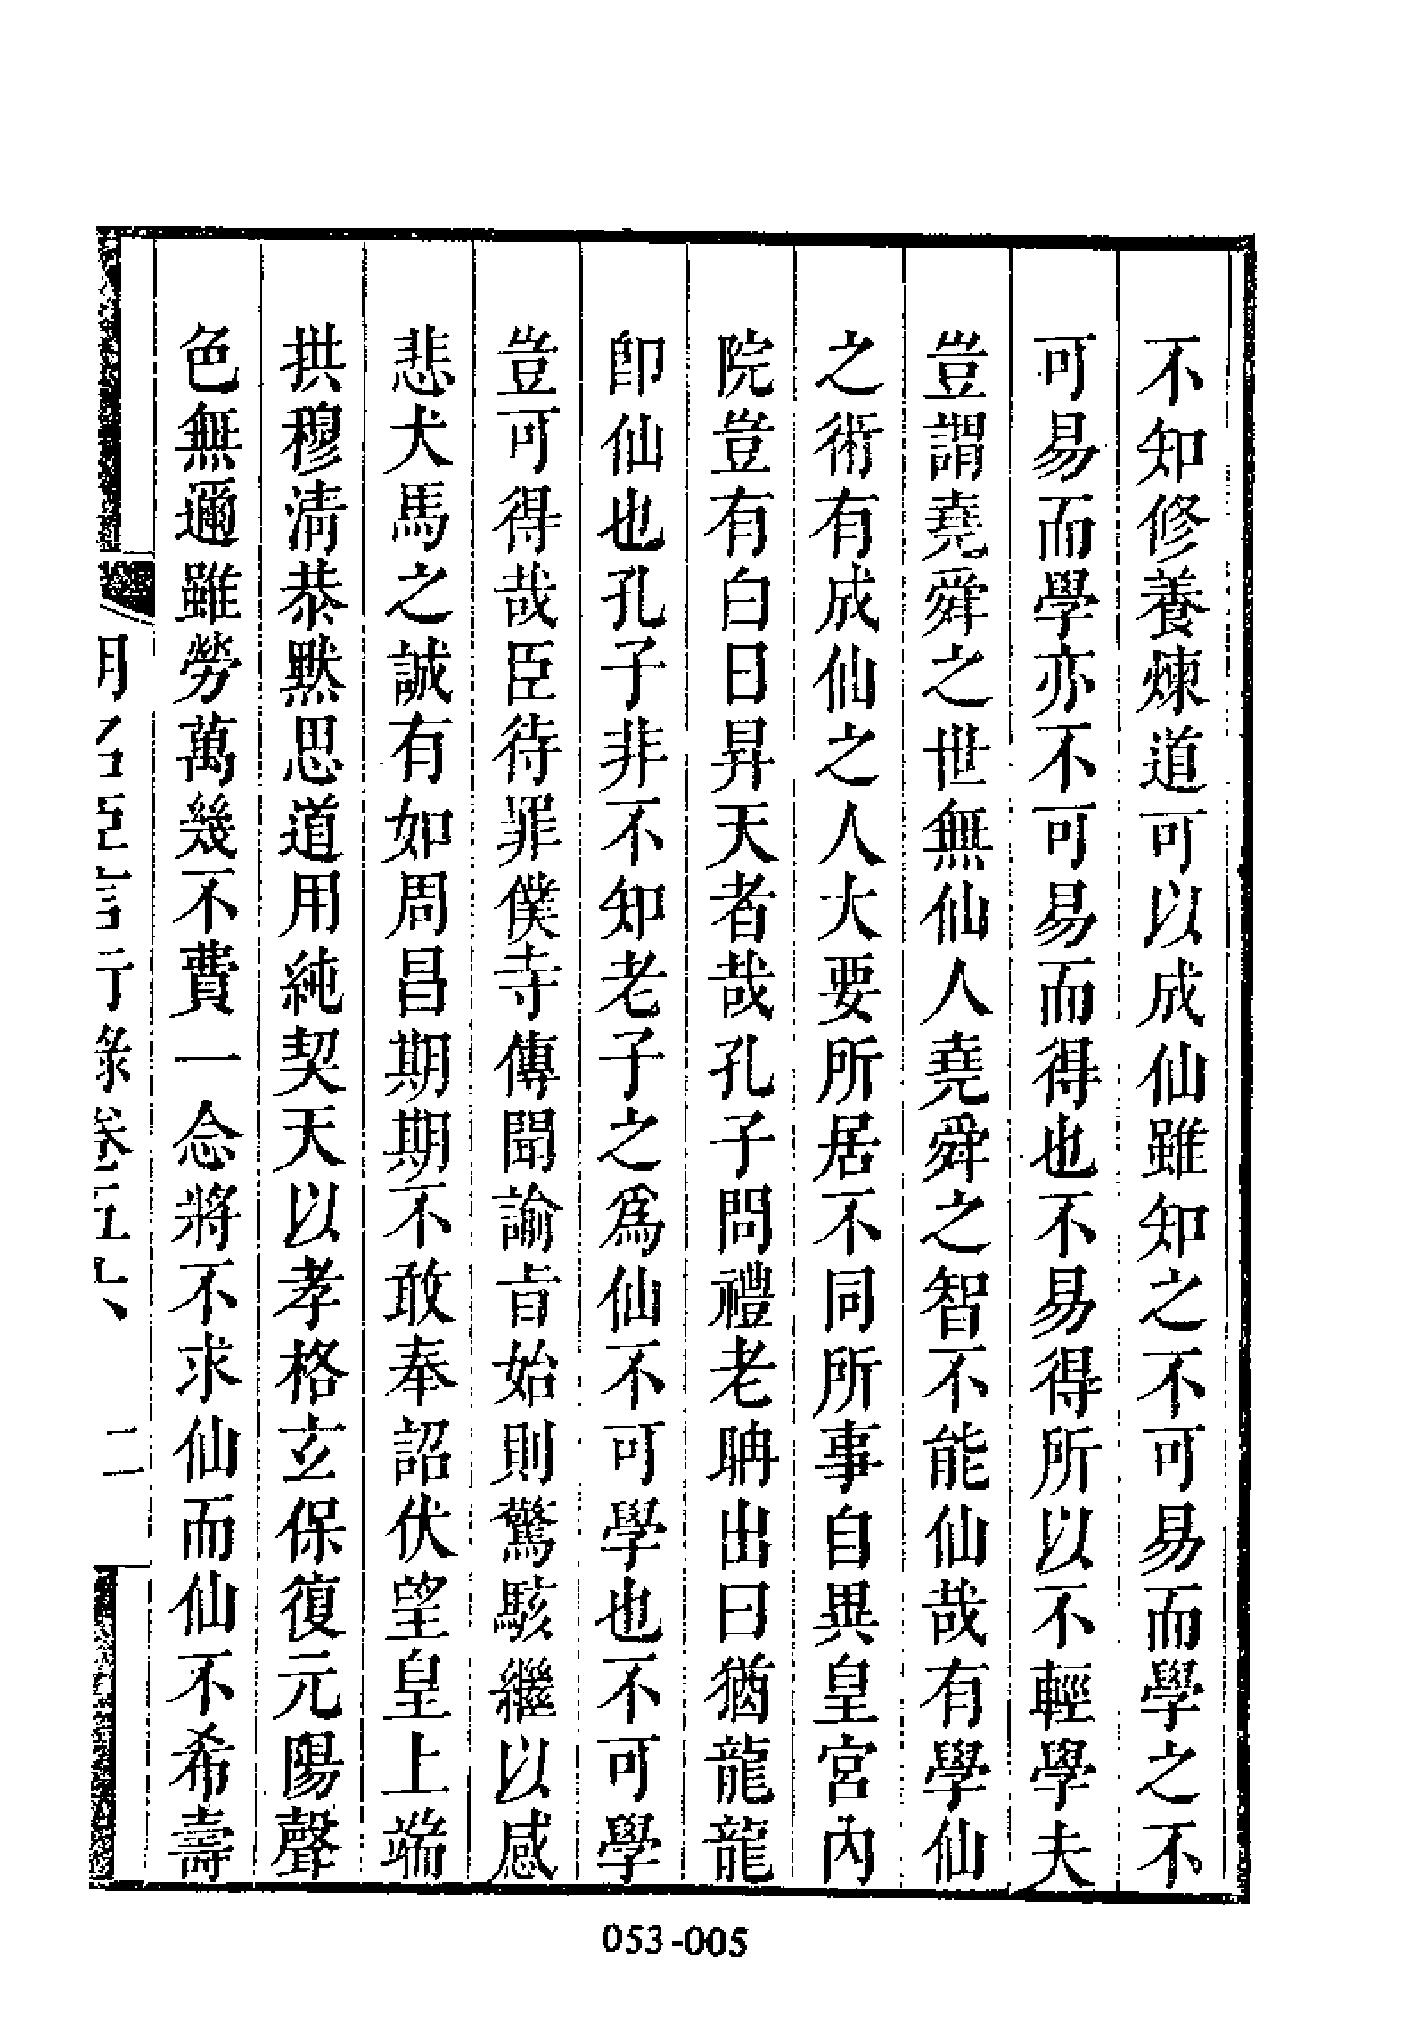 不知修養煉道可以成仙雖知之不可易而學之不
可易而學亦不可易而得也不易得所以不輕學夫
豈謂堯舜之世無仙人堯舜之智不能仙哉有學仙
之術有成仙之人大要所居不同所事自異皇宮內
院豈有白日昇天者哉孔子問禮老聃出曰猶龍龍
卽仙也孔子非不知老子之爲仙不可學也不可學
豈可得哉臣待罪僕寺傳聞諭旨始則驚駭繼以感
悲犬馬之誠有如周昌期期不敢奉詔伏望皇上端
拱穆清恭默思道用純契天以孝格玄保復元陽聲
色無邇雖勞萬幾不費一念將不求仙而仙不希壽
明名臣言行錄卷五六 二
053-005